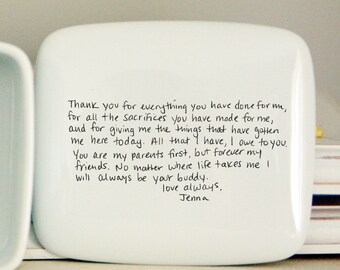 Thank you for everything you have done for me,
for all the sacrifices you have made for me,
and for giving me the things that have gotten
me here today. All that I have, I owe to you.
You are my parents first, but forever my
friends. No matter where life takes me I
will always be your buddy.
love always,
Jenna